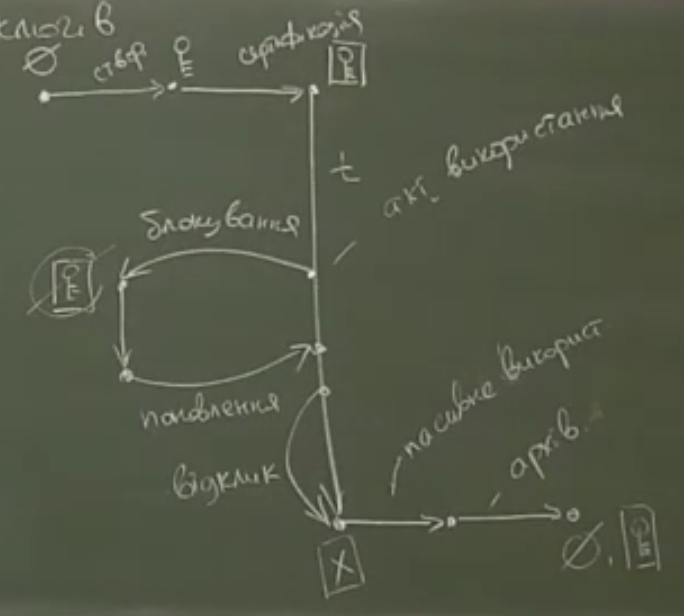 ключів
створ.
сертифікація
акт. використання
блокування
поновлення
відклик
пасивне використ.
архів.
X